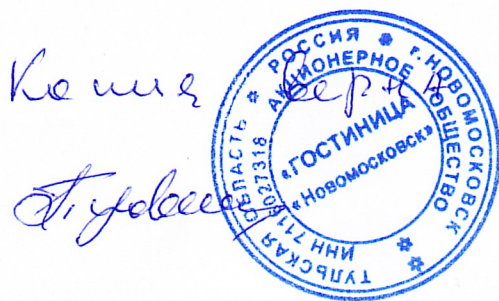 Копия верна
РОССИЯ * г. НОВОМОСКОВСК * ТУЛЬСКАЯ ОБЛАСТЬ *
АКЦИОНЕРНОЕ ОБЩЕСТВО * ИНН 7116027318
«ГОСТИНИЦА
«Новомосковск»